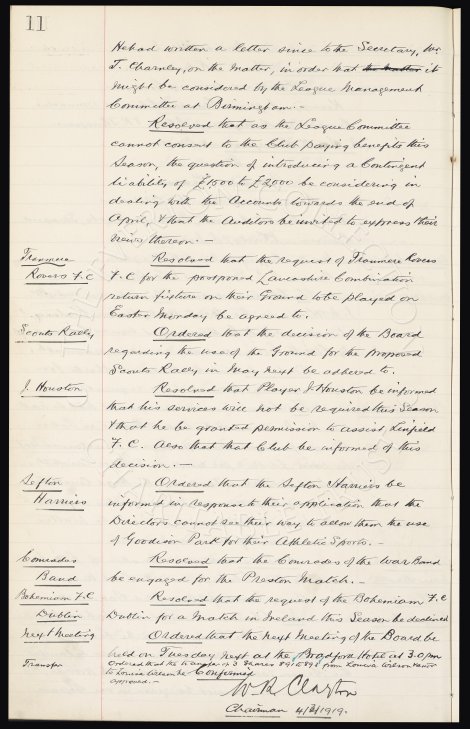 11
He had written a letter since to the Secretary, Mr
T. Charnley, on the matter, in order that the matter it
might be considered by the League Management
Committee at Birmingham.-
Resolved that as the League Committee
cannot consent to the Club paying benefits this
Season, the question of introducing a Contingent
liability of £1500 to £2000 be considering in
dealing with the Accounts towards the end of
April, & that the Auditors be invited to express their
views thereon.-
Tranmere
Rovers F.C
Resolved that the request of Tranmere Rovers
F.C for the postponed Lancashire Combination
return fixture on their Ground to be played on
Easter Monday be agreed to.
Scouts Rally
Ordered that the decision of the Board
regarding the use of the Ground for the proposed
Scouts Rally in May next be adhered to.
J. Houston
Resolved that Player J Houston be informed
that his services will not be required this Season
& that he be granted permission to assist Linfield
F.C. Also that that Club be informed of this
decision.-
Sefton
Harriers
Ordered that the Sefton Harriers be
informed in response to their application that the
Directors cannot see their way to allow them the use
of Goodison Park for their Athletic Sports.-
Comrades
Band
Resolved that the Comrades of the War Band
be engaged for the Preston Match.-
Bohemian F.C
Dublin
Resolved that the request of the Bohemian F.C
Dublin for a Match in Ireland this Season be declined
Next Meeting
Ordered that the next Meeting of the Board be
held on Tuesday next at the Bradford Hotel at 3.0pm
Transfer
Ordered that the transfer of 3 Shares from Louisa Wilson
to Louisa Wilson be Confirmed
approved.-
W.R. Clayton
Chairman 4/3/1919.